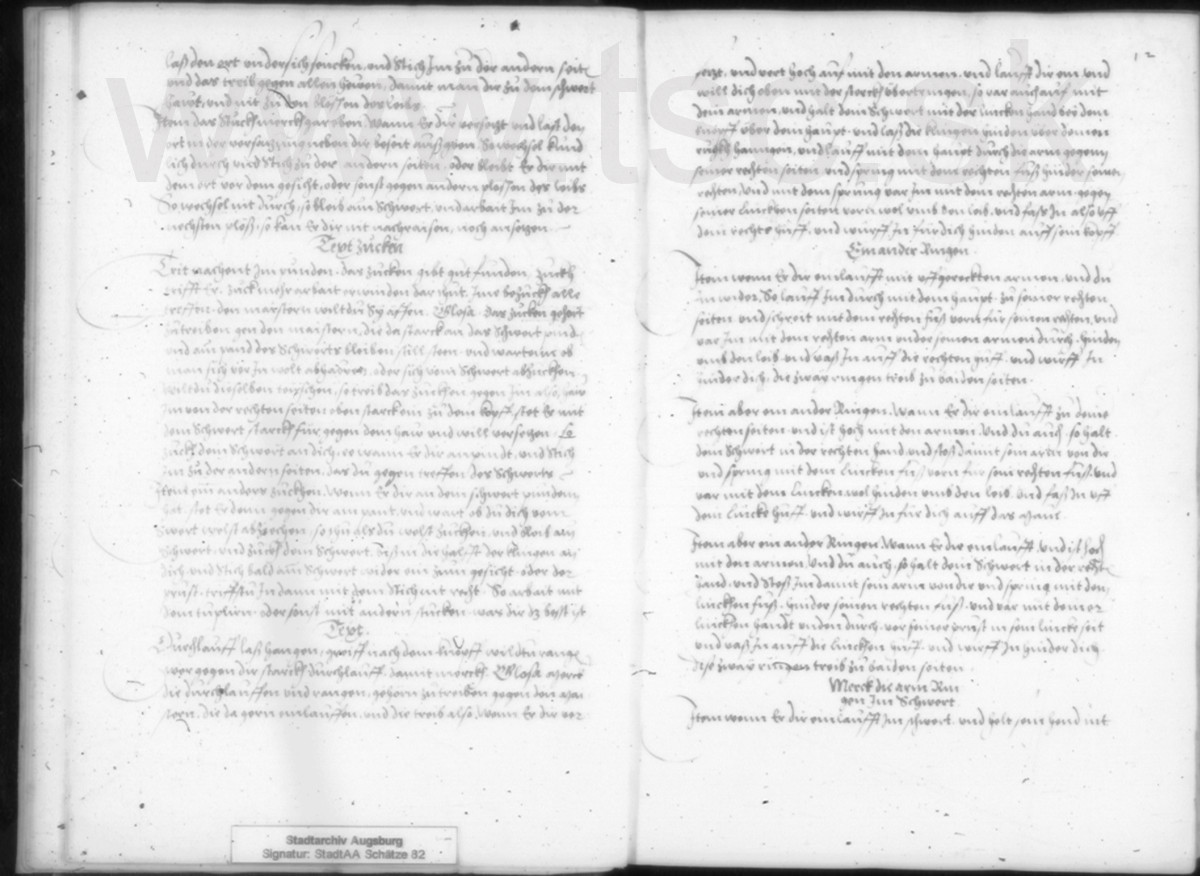 laß den ort vndersich sincken, vnd stich Im zu der andern seite
vnd das treib gegen allen hewen, damit man dir zu dem schwert
hawt, vnd nit zu den blossen des leibs
Item das stuck merck gar eben, Wann Er dir versetzt vnd last den
ort in der versatzung neben dir beseit auß geen, So wechsel künd
lich durch vnd stich zu der andern seitten, oder bleibt Er dir mit
dem ort vor dem gesicht, oder sonst gegen andern plossen des leibs
So wechsel nit durch, so bleib am Schwert, vnd arbait Im zu der
nechsten ploß, so kan Er dir nit nachraisen, noch ansetzen
Text zucken
Trit nachent Im punden, das zucken gibt gut funden, zuckh
trifft Er, zuck mehr arbait erwinden das thut, Inne bezuckh alle
treffen, den maistern wiltdu Sy effen. Glosa. das zucken gehört
zutreiben gen den maistern, die da starck an das Schwert pind
vnd am pand des Schwerts bleiben still steen vnd warten ob
man sich vor In wolt abhawen, oder sich vom Schwert abzuckhen
wiltdu dieselben teuschen, so treib das zucken gegen Im also, haw
Im von der rechten seiten oben starck ein zu dem kopff, fert Er mit
dem Schwert starck für gegen dem haw vnd will versetzen, So
zuckh dein Schwert an dich, ee wann Er dir anpindt, vnd stich
Im zu der andern seiten, das du gegen treffen des Schwerts
Item ein anders zuckhen, Wenn Er dir an dem schwert punden
hat, stet Er denn gegen dir am pant, vnd wart ob du dich vom
Swert wolst abziechen, so thu als du wolst zuckhen, vnd bleib am
Schwert, vnd zuckh dein Schwert, biß in die halff der klingen an
dich, vnd stich bald am Schwert wider ein zum gesicht oder der
prust, triffstu In dann mit dem stich nit recht So arbait mit
dem tuplirn, oder sonst mit andern stucken, was dir dz best ist
Text.
Durchlauff laß hangen, greiff nach dem knopff wildtu range
wer gegen dir starckh durchlauff, damit merckh. Glosa, merck
die durchlauffen vnd rangen, gehorn zu treiben gegen den mai
stern, die da gern einlauffen, vnd die treib also, wenn Er dir ver
12
setzt, vnd vert hoch auf mit den armen, vnd laufft dir ein, vnd
will dich oben mit der sterckh vbertringen, so var auch auf mit
den armen, vnd halt dein Schwert mit der lincken hand bei dem
knopff vber dein haupt, vnd laß die klingen hinden vber deinen
rucken hanngen, vnd lauff mit dem haupt durch die arm gegen
seiner rechten seiten, vnd spring mit dem rechten fuß hinder seinen
rechten, vnd mit dem sprung var Im mit dem rechten arm gegen
seiner linckhen seiten vorn wol vmb den leib, vnd fass In also vff
dein rechte hüff, vnd würff In für dich hinden auff sein kopff
Ein ander Ringen
Item wenn Er dir einlaufft mit vffgereckten armen, vnd du
Im wider, So lauff Im durch mit dem haupt zu seiner rechten
seiten vnd schreit mit dem rechten fuß vorn für seinen rechten, vnd
var Im mit dem rechten arm vnder seinen armen durch, hinden
vmb den leib vnd vaß In auff die rechten hüff, vnd würff In
hinder dich, die zwai ringen treib zu baiden seiten
Item aber ein ander Ringen, Wann Er dir einlaufft zu deine
rechten seiten vnd ist hoch mit den armen, vnd du auch, so halt
dein Schwert in der rechten hand, vnd stoß damit sein arm von dir
vnd spring mit dem lincken fuß vorn für sein rechten fuß vnd
var mit dem lincken wol hinden vmb den leib, vnd faß In vff
dein lincke hüff, vnd würff In für dich auff das maul
Item aber ein ander Ringen, Wann Er dir einlaufft, vnd ist hoch
mit den armen, vnd du auch, so halt dein Schwert in der rechten
hand, vnd stoß In damit sein arm von dir vnd spring mit dem
linckhen fuß, hinder seinen rechten fuß, vnd var mit dem
linckhen handt vnden durch, vor seiner prust in sein lincke seit
vnd vaß In auff die linckhen hüff, vnd würff In hinder dich
dise zwai ringen treib zu baiden seiten
Merck die arm Rin
gen Im Schwert
Item wenn Er dir einlaufft Im schwert, vnd helt sein hend nit
Stadtarchiv Augsburg
Signatur: StadtAA Schätze 82